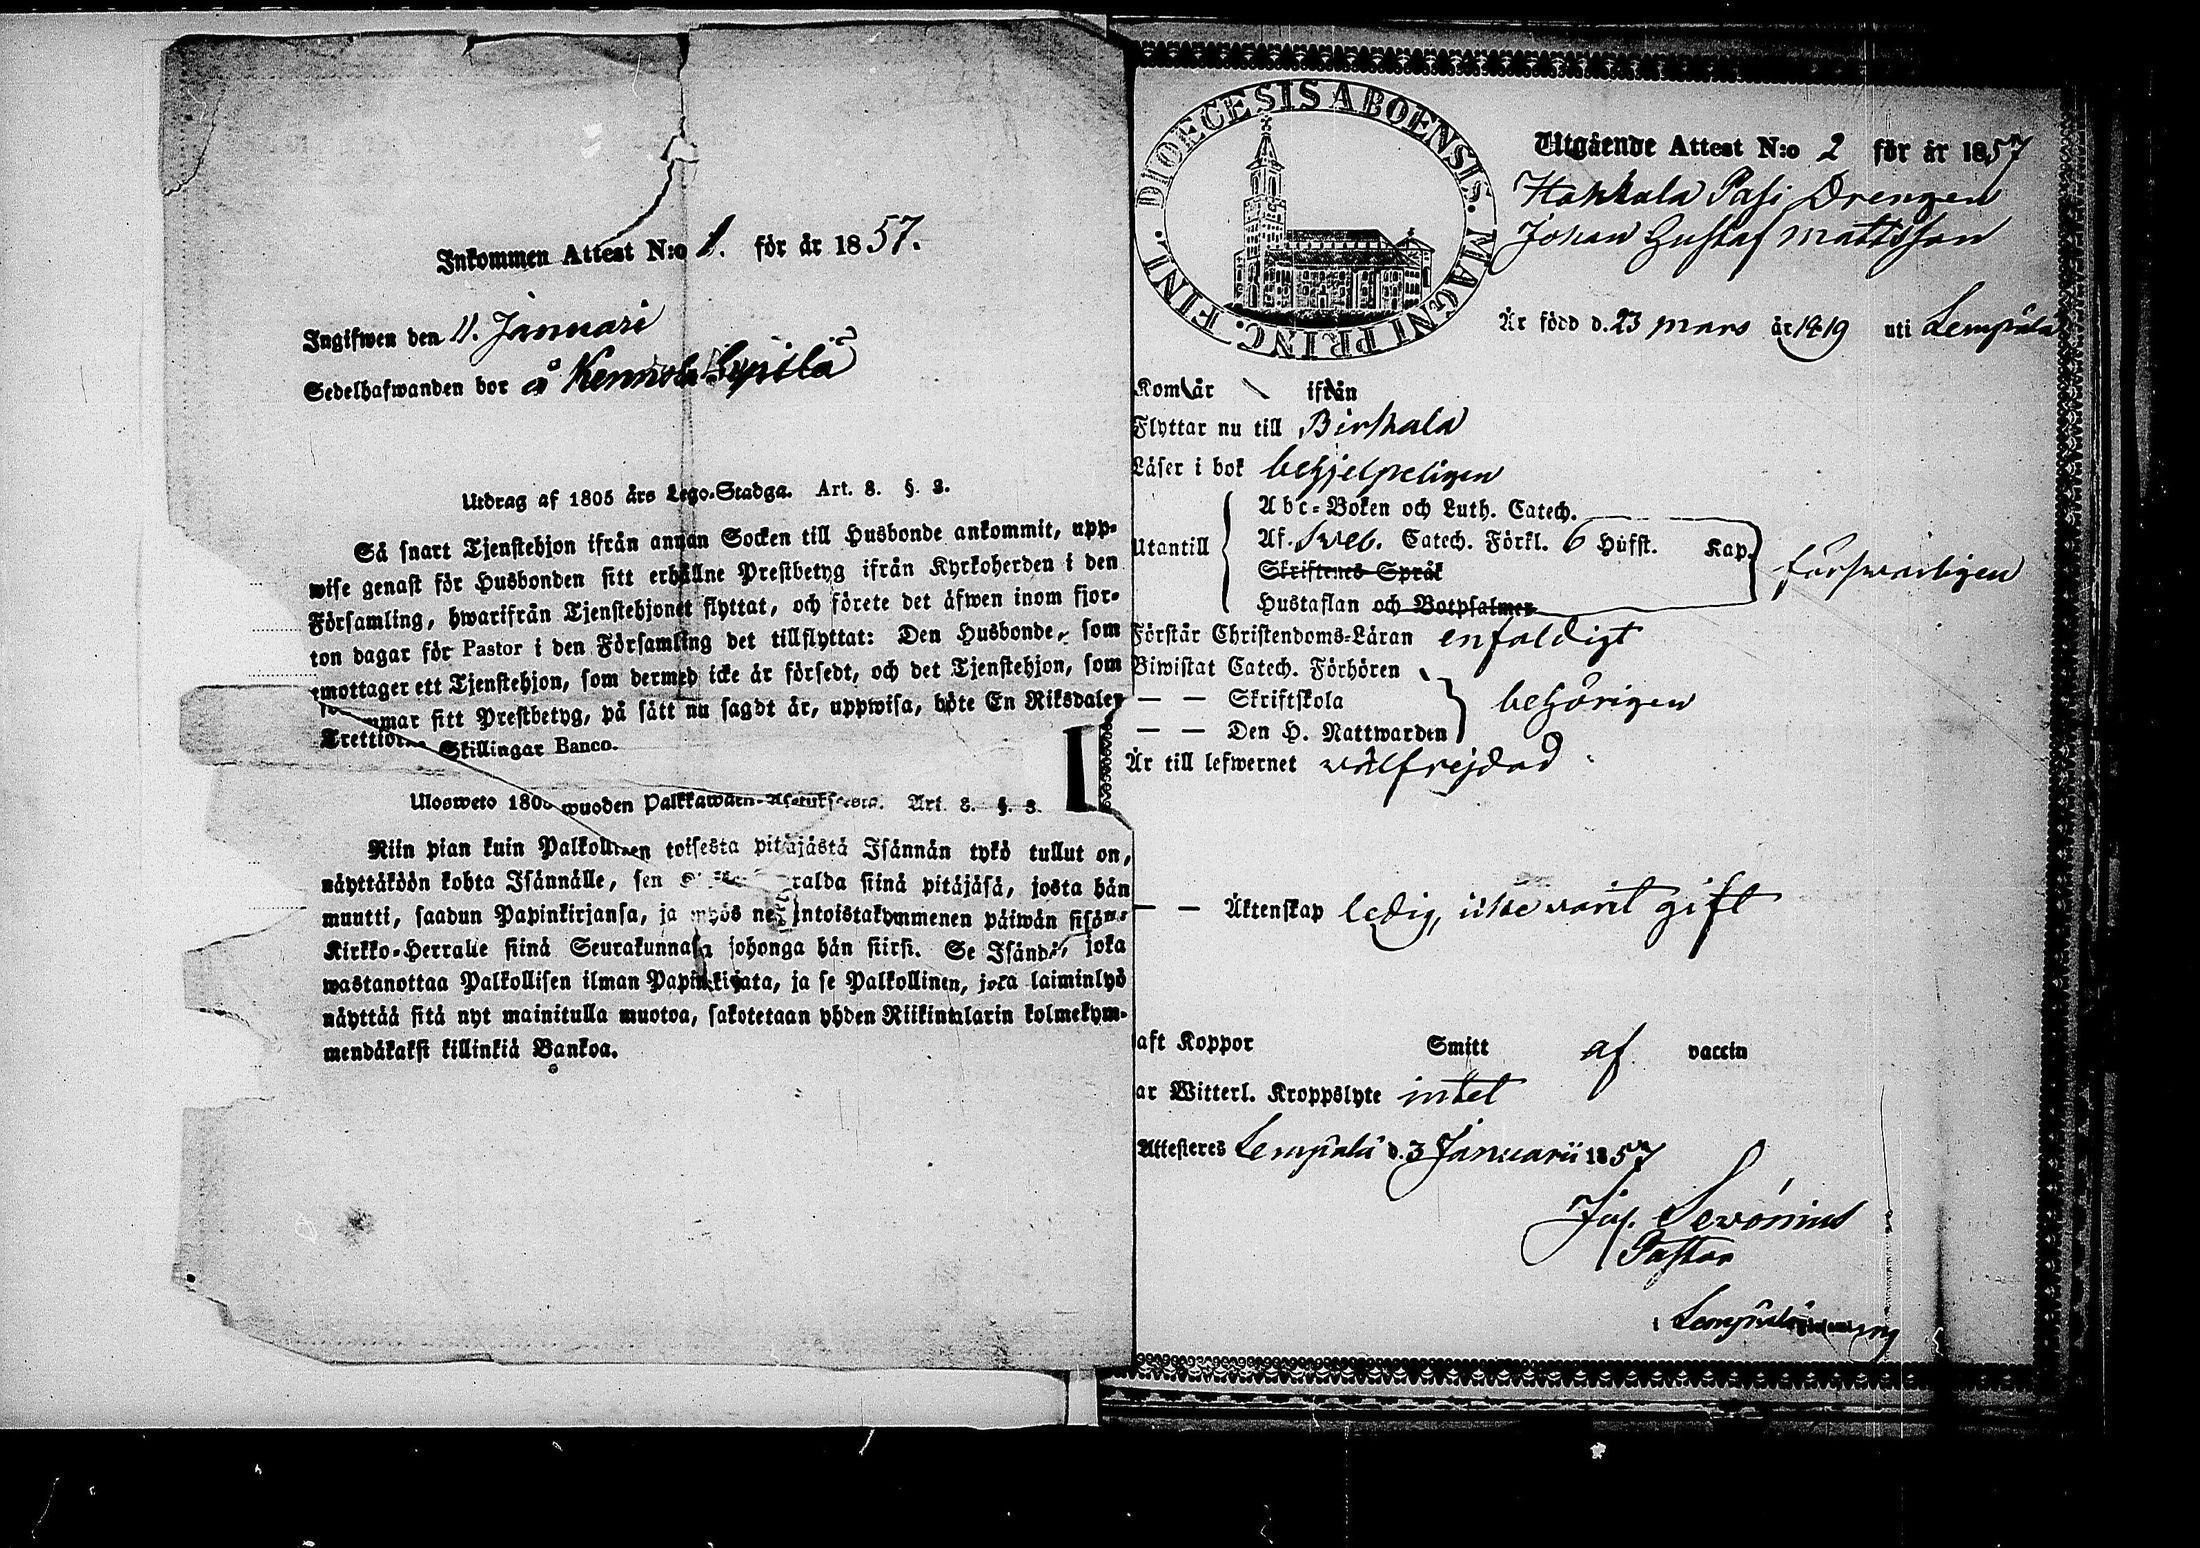 Inkommen Attest N:o 1. för år 1857.
Ingifwen den 11. Januari
Sedelhafwanden bor å
Utdrag af 1805 års Lego-Stadga. Art. 8. §. 3.
Så snart Tjenstehjon ifrån annan Socken till Husbonde ankommit, upp-
wise genast för Husbonden sitt erhållne Prestbetyg ifrån Kyrkoherden i den
Församling, hwarifrån Tjenstehjonet flyttat, och förete det äfwen inom fjor-
ton dagar för Pastor i den Församling det tillflyttat: Den Husbonde, som
emottager ett Tjenstehjon, som dermed icke är försedt, och det Tjenstehjon, som
sitt Prestbetyg, på sätt nu sagdt är, uppwisa, böte En Riksdaler
Skillingar Banco.
Ulosweto wuoden Palkkawäen-Asetuksesta. Art. 8. §. 3.
Niin pian kuin Palkollinen toisesta pitäjästä Isännän tykö tullut on,
näyttäköön kohta Isännälle, sen siinä pitäjäsä, josta hän
muutti, saadun Papinkirjansa, ja myös neljäntoistakymmenen päiwän sisä
Kirkko-Herralle siinä Seurakunnasa johonga hän siirsi. Se Isändä, joka
wastanottaa Palkollisen ilman Papinkirjata, ja se Palkollinen, joka laiminlyö
näyttää sitä nyt mainitulla muotoa, sakotetaan yhden Riikintalarin kolmekym-
mendäkaksi killinkiä Bankoa.
DIOECESIS ABOENSIS. MAGNI PRINC. FINL.
Utgående Attest N:o 2 för år 1857
Hakkala Pasi Drengen
Johan Gustaf Mattsson
Är född d. 23 mars år 1819 uti Lempälä
Kom år ifrån
Flyttar nu till Birkala
Läser i bok behjelpeligen
Abc-Boken och Luth. Catech.
Utantill Af. Sveb. Catech. Förkl. 6 Hufst. Kap. förswarligen
Skriftenes Språk
Hustaflan och Botpsalmer
Förstår Christendoms-Läran enfaldigt
Biwistat Catech. Förhören
— — Skriftskola behörigen
— — Den H. Nattwarden
Är till lefwernet wälfrejdad
— — Äktenskap ledig, icke varit gift
aft Koppor Smitt af vaccin
ar Witterl. Kroppslyte intet
Attesteres Lempälä d. 3 Januarii 1857
Jos. Sevonius
Pastor